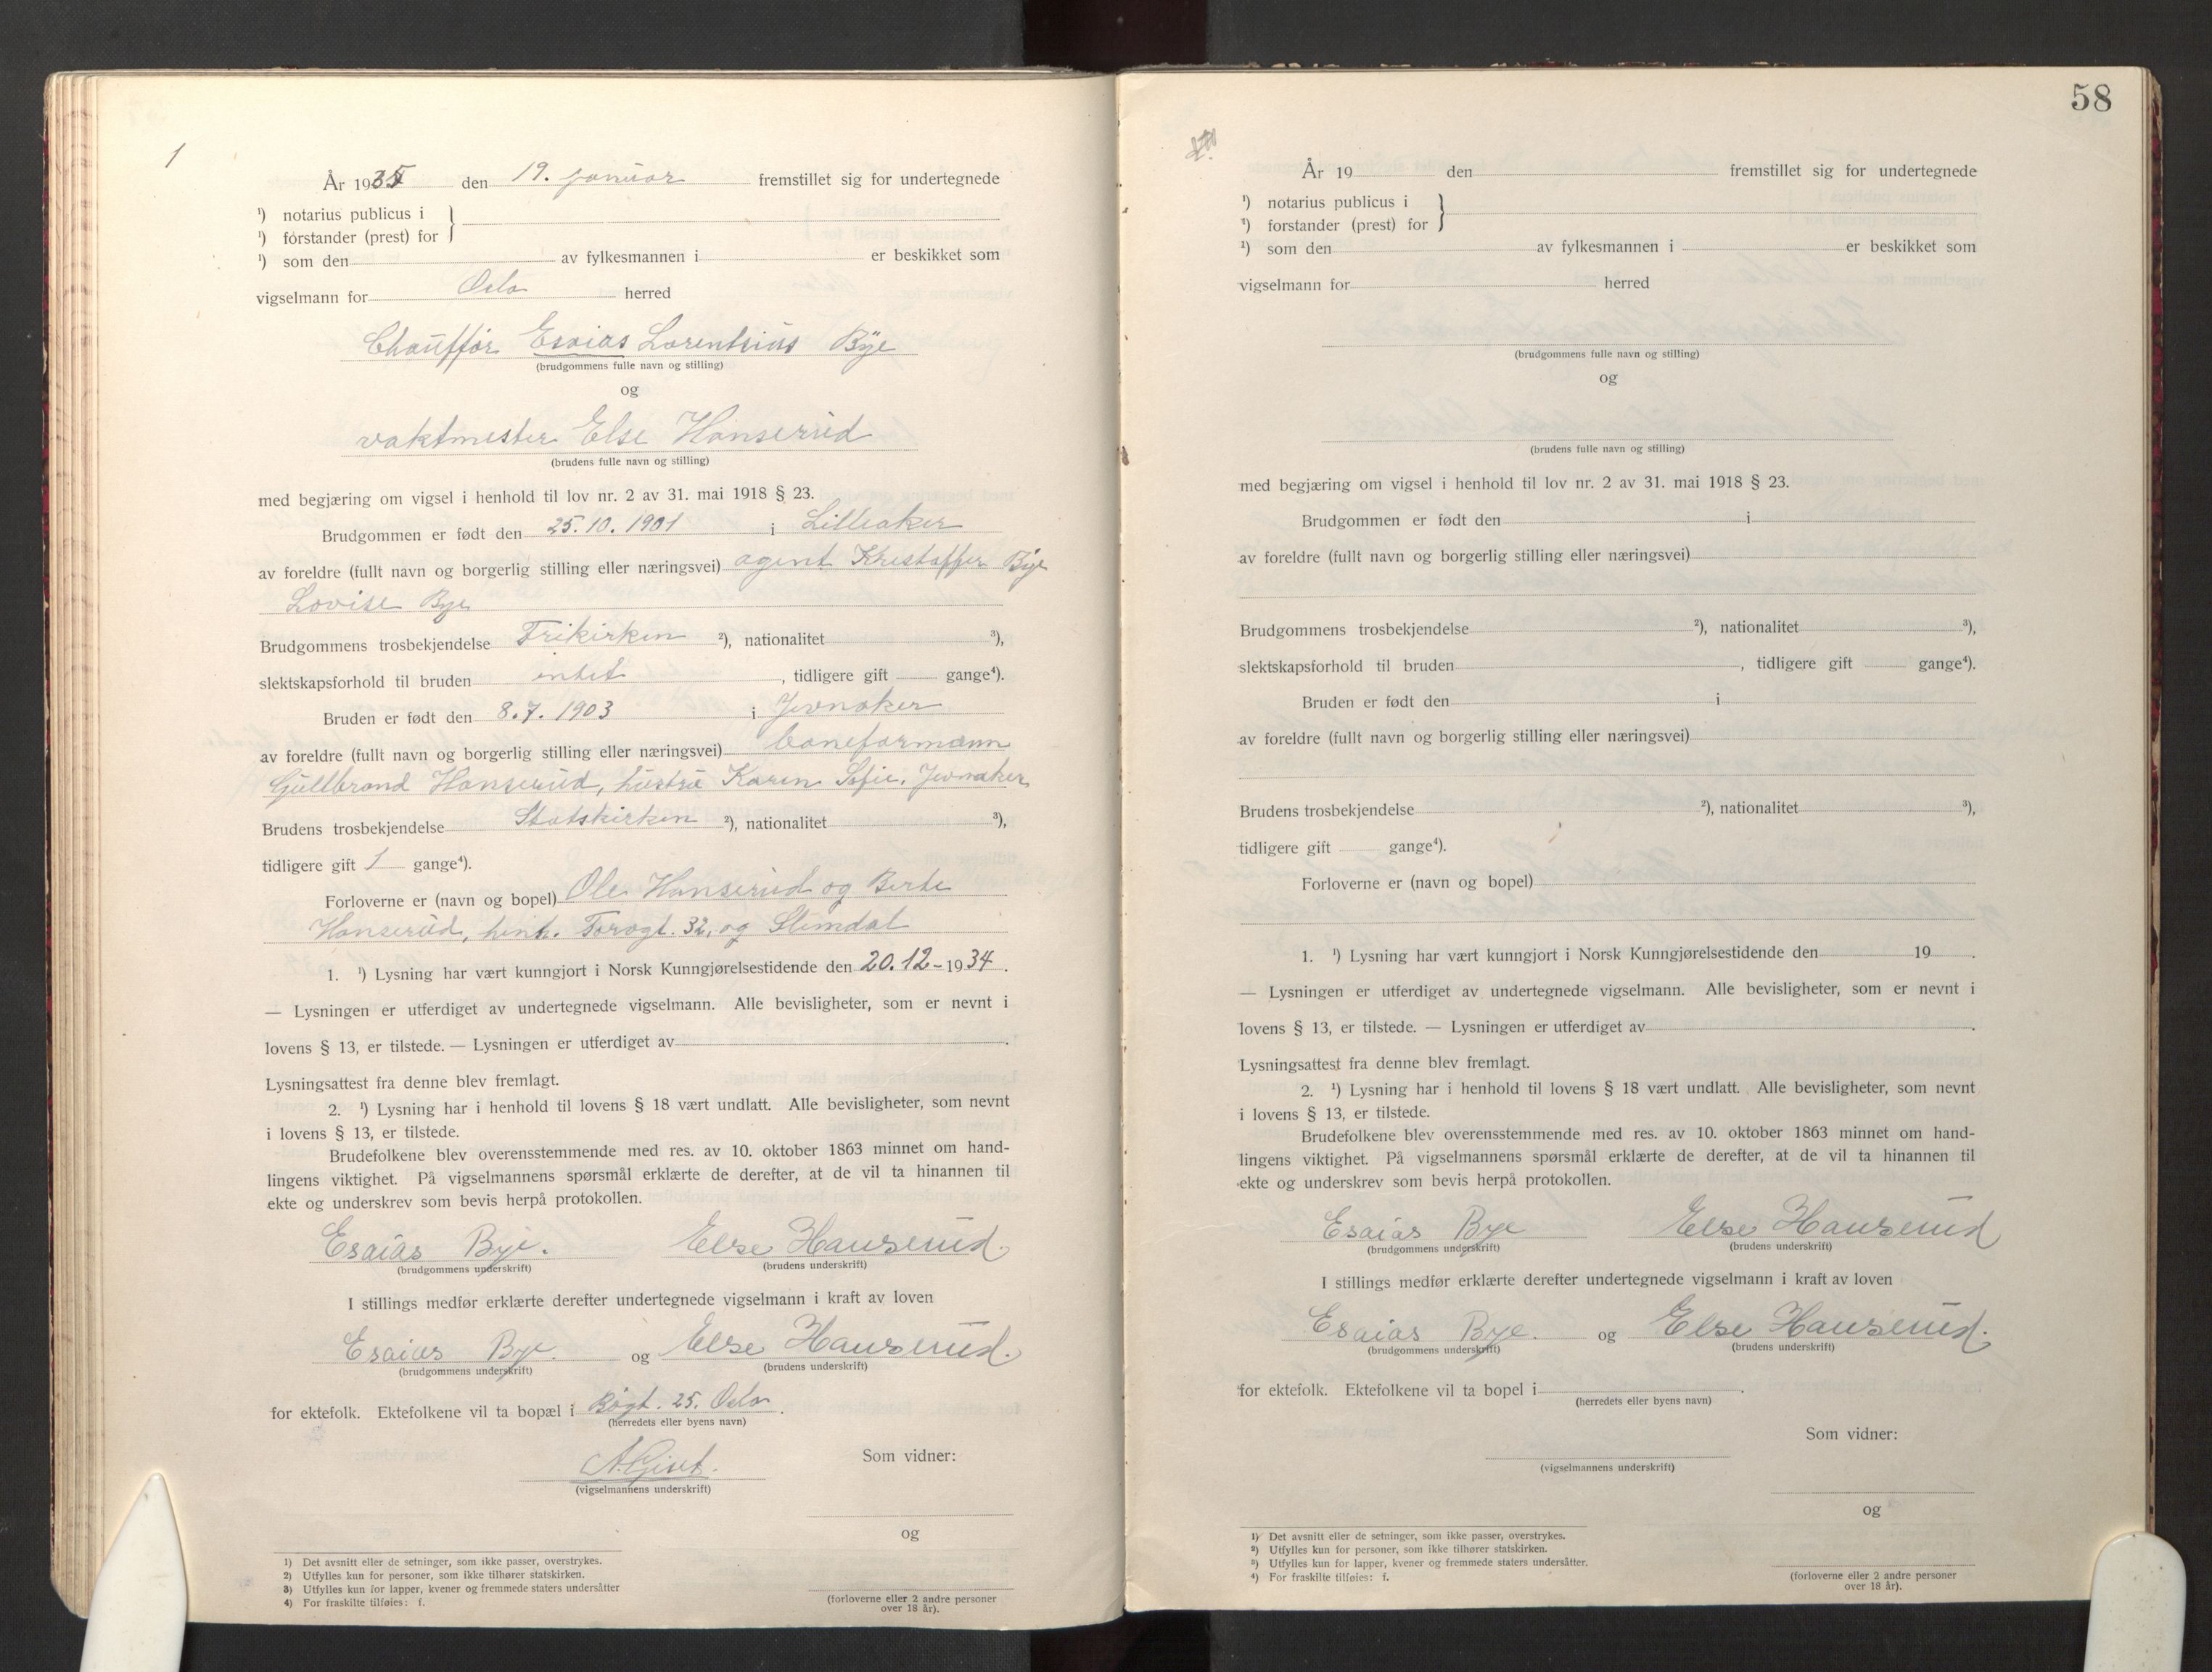 1
År 1935 den 19. januar fremstillet sig for undertegnede
¹) notarius publicus i
¹) forstander (prest) for
¹) som den av fylkesmannen i er beskikket som
vigselmann for Oslo herred
Chauffør Esaias Lorentsius Bye
(brudgommens fulle navn og stilling)
og
vaktmester Else Hanserud
(brudens fulle navn og stilling)
med begjæring om vigsel i henhold til lov nr. 2 av 31. mai 1918 § 23.
Brudgommen er født den 25.10.1901 i Lilleaker
av foreldre (fullt navn og borgerlig stilling eller næringsvei) agent Kristoffer Bye
Lovise Bye
Brudgommens trosbekjendelse Frikirken ²), nationalitet ³),
slektskapsforhold til bruden intet, tidligere gift gange⁴).
Bruden er født den 8.7.1903 i Jevnaker
av foreldre (fullt navn og borgerlig stilling eller næringsvei) baneformann
Gullbrand Hanserud, hustru Karen Sofie, Jevnaker
Brudens trosbekjendelse Statskirken ²), nationalitet ³),
tidligere gift 1 gange⁴).
Forloverne er (navn og bopel) Ole Hanserud og Berte
Hanserud, henh. Torggt. 32, og
1. ¹) Lysning har vært kunngjort i Norsk Kunngjørelsestidende den 20.12-1934.
— Lysningen er utferdiget av undertegnede vigselmann. Alle bevisligheter, som er nevnt i
lovens § 13, er tilstede. — Lysningen er utferdiget av .
Lysningsattest fra denne blev fremlagt.
2. ¹) Lysning har i henhold til lovens § 18 vært undlatt. Alle bevisligheter, som nevnt
i lovens § 13, er tilstede.
Brudefolkene blev overensstemmende med res. av 10. oktober 1863 minnet om hand-
lingens viktighet. På vigselmannens spørsmål erklærte de derefter, at de vil ta hinannen til
ekte og underskrev som bevis herpå protokollen.
Esaias Bye. Else Hanserud.
(brudgommens underskrift) (brudens underskrift)
I stillings medfør erklærte derefter undertegnede vigselmann i kraft av loven
Esaias Bye. og Else Hanserud.
(brudgommens underskrift) (brudens underskrift)
for ektefolk. Ektefolkene vil ta bopæl i 25. Oslo.
(herredets eller byens navn)
Som vidner:
(vigselmannens underskrift)
og
(forloverne eller 2 andre personer
over 18 år).
1) Det avsnitt eller de setninger, som ikke passer, overstrykes.
2) Utfylles kun for personer, som ikke tilhører statskirken.
3) Utfylles kun for lapper, kvener og fremmede staters undersåtter
4) For fraskilte tilføies: f.
58
År 19 den fremstillet sig for undertegnede
¹) notarius publicus i
¹) forstander (prest) for
¹) som den av fylkesmannen i er beskikket som
vigselmann for herred
(brudgommens fulle navn og stilling)
og
(brudens fulle navn og stilling)
med begjæring om vigsel i henhold til lov nr. 2 av 31. mai 1918 § 23.
Brudgommen er født den i
av foreldre (fullt navn og borgerlig stilling eller næringsvei)
Brudgommens trosbekjendelse ²), nationalitet ³),
slektskapsforhold til bruden , tidligere gift gange⁴).
Bruden er født den i
av foreldre (fullt navn og borgerlig stilling eller næringsvei)
Brudens trosbekjendelse ²), nationalitet ³),
tidligere gift gange⁴).
Forloverne er (navn og bopel)
1. ¹) Lysning har vært kunngjort i Norsk Kunngjørelsestidende den 19 .
— Lysningen er utferdiget av undertegnede vigselmann. Alle bevisligheter, som er nevnt i
lovens § 13, er tilstede. — Lysningen er utferdiget av .
Lysningsattest fra denne blev fremlagt.
2. ¹) Lysning har i henhold til lovens § 18 vært undlatt. Alle bevisligheter, som nevnt
i lovens § 13, er tilstede.
Brudefolkene blev overensstemmende med res. av 10. oktober 1863 minnet om hand-
lingens viktighet. På vigselmannens spørsmål erklærte de derefter, at de vil ta hinannen til
ekte og underskrev som bevis herpå protokollen.
Esaias Bye Else Hanserud
(brudgommens underskrift) (brudens underskrift)
I stillings medfør erklærte derefter undertegnede vigselmann i kraft av loven
Esaias Bye. og Else Hanserud.
(brudgommens underskrift) (brudens underskrift)
for ektefolk. Ektefolkene vil ta bopel i .
(herredets eller byens navn)
Som vidner:
(vigselmannens underskrift)
og
(forloverne eller 2 andre personer
over 18 år).
1) Det avsnitt eller de setninger, som ikke passer, overstrykes.
²) Utfylles kun for personer, som ikke tilhører statskirken.
³) Utfylles kun for lapper, kvener og fremmede staters undersåtter.
⁴) For fraskilte tilføies: f.